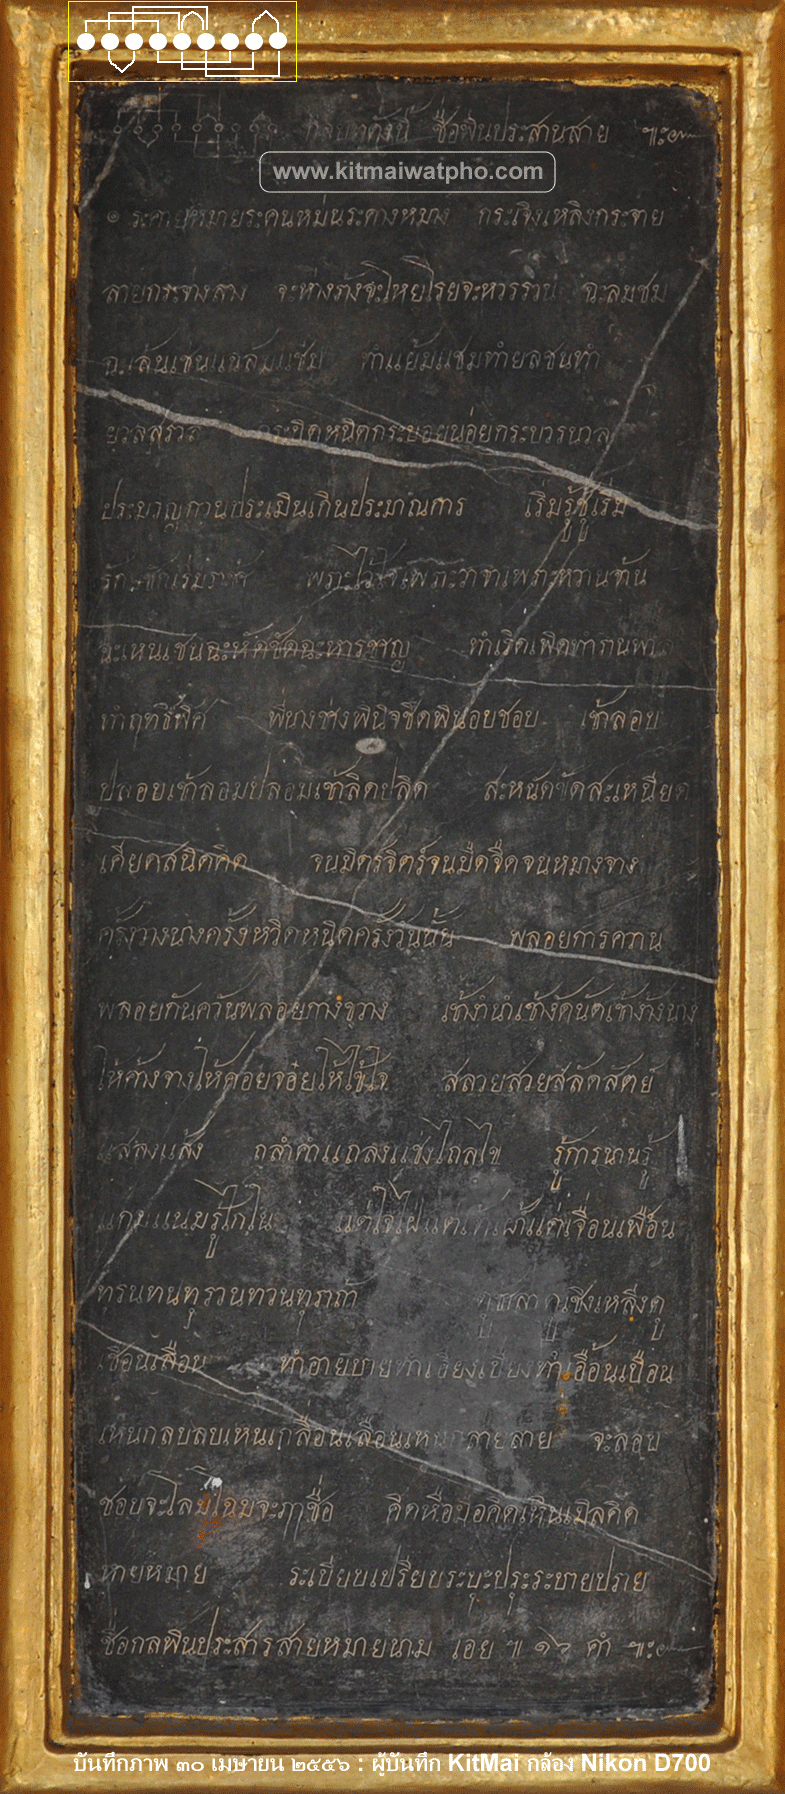 กลบทดั่งนี้ ชื่อพินประสานสาย ๚ะ๛
www.kitmaiwatpho.com
๏ ระคายหมายระคนหม่นระคางหมาง กระเจิงเหลิงกระจาย
สายกระจ่างสาง จะห่างร้างจะโหยโรยจะหวรรวน ฉะลมชม
ทำแย้มแชมทำยลชนทำ
ยวลสรวล กระบิดหนิดกระบอยน่อยกระบวรนวล
ประมวญกวนประเมินเกินประมาณการ เริ่มรู้ชู้เริ่ม
เพราะวาจาเพราะหวานจ้าน
ทำเริดเพิดทำรานพาล
ทำฤทธิพิศ พี่นางช่างพินิจชิดพินอบชอบ เข้าลอบ
ปลอบเข้าลอมปลอมเข้าลิดปลิด สะหนัดขัดสะเหนียด
เคียดสนิดคิด จนมิตรจิตร์จนมืดจืดจนหมางจาง
ครั้งวางนางครั้งหวิดหนิดครั้งวันนั้น พลอยการควาน
พลอยกันควันพลอยกางขวาง เข้างำนำเข้างัดนัดเข้าง้างนาง
ให้ค้างจางให้คอยจอยให้ไข้ใจ สลวยสวยสลัดสัตย์
แสลงแส้ง ถลำคำแถลงแข่งไถลไข รู้การนานรู้
แกมแนมรู้ไกใน แต่ใจไฝ่แต่เจ้าเฝ้าแต่เจื่อนเฟือน
ทุรนทนทุรวนทวนทุราถ้า คู่เชิงเหลิ่งคู่
เชือนเลือน ทำอายบายทำเอียงเบี่ยงทำเอื้อนเบือน
เหนกลบลบเหนเกลื่อนเลือนเหนกลายลาย จะลอบ
ชอบจะโลมโฉมจะฦๅชื่อ คิดหือมือคิดเหินเมิลคิด
หายหมาย ระเบียบเปรียบระบุะปรุะระบายปราย
ชื่อกลพินประสารสายหมายนาม เอย ๚ ๑๖ คำ ๚ะ๛
บันทึกภาพ ๓๐ เมษายน ๒๕๕๖ : ผู้บันทึก KitMai กล้อง Nikon D700